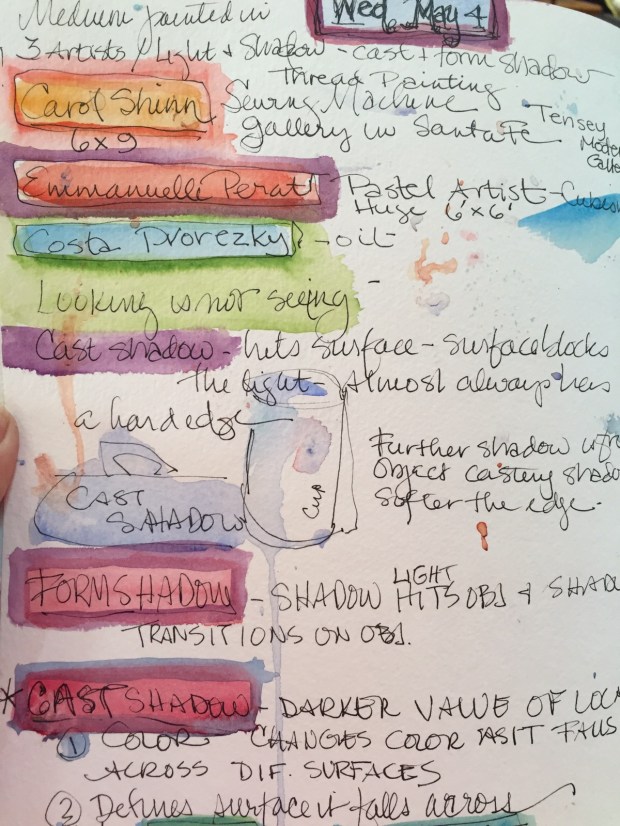 Medium painted in
Wed May 4
3 Artists / Light + Shadow - cast + form shadow
Thread Painting
Carol Shinn Sewing Machine
6x9 gallery in Santa Fe
Tensey
Emmanuelli Perati Pastel Artist -
Huge 6'x6'
Costa Dvorezky - oil -
Looking is not seeing -
Cast shadow - hits surface - surface blocks
the light - Almost always has
a hard edge
Further shadow
object casting
softer the edge -
Cup
CAST
SHADOW
FORM SHADOW - SHADOW LIGHT HITS OBJ +
TRANSITIONS ON OBJ.
* CAST SHADOW - DARKER VALUE OF
① COLOR CHANGES COLOR AS IT FALLS
ACROSS DIF. SURFACES
② Defines surface it falls across